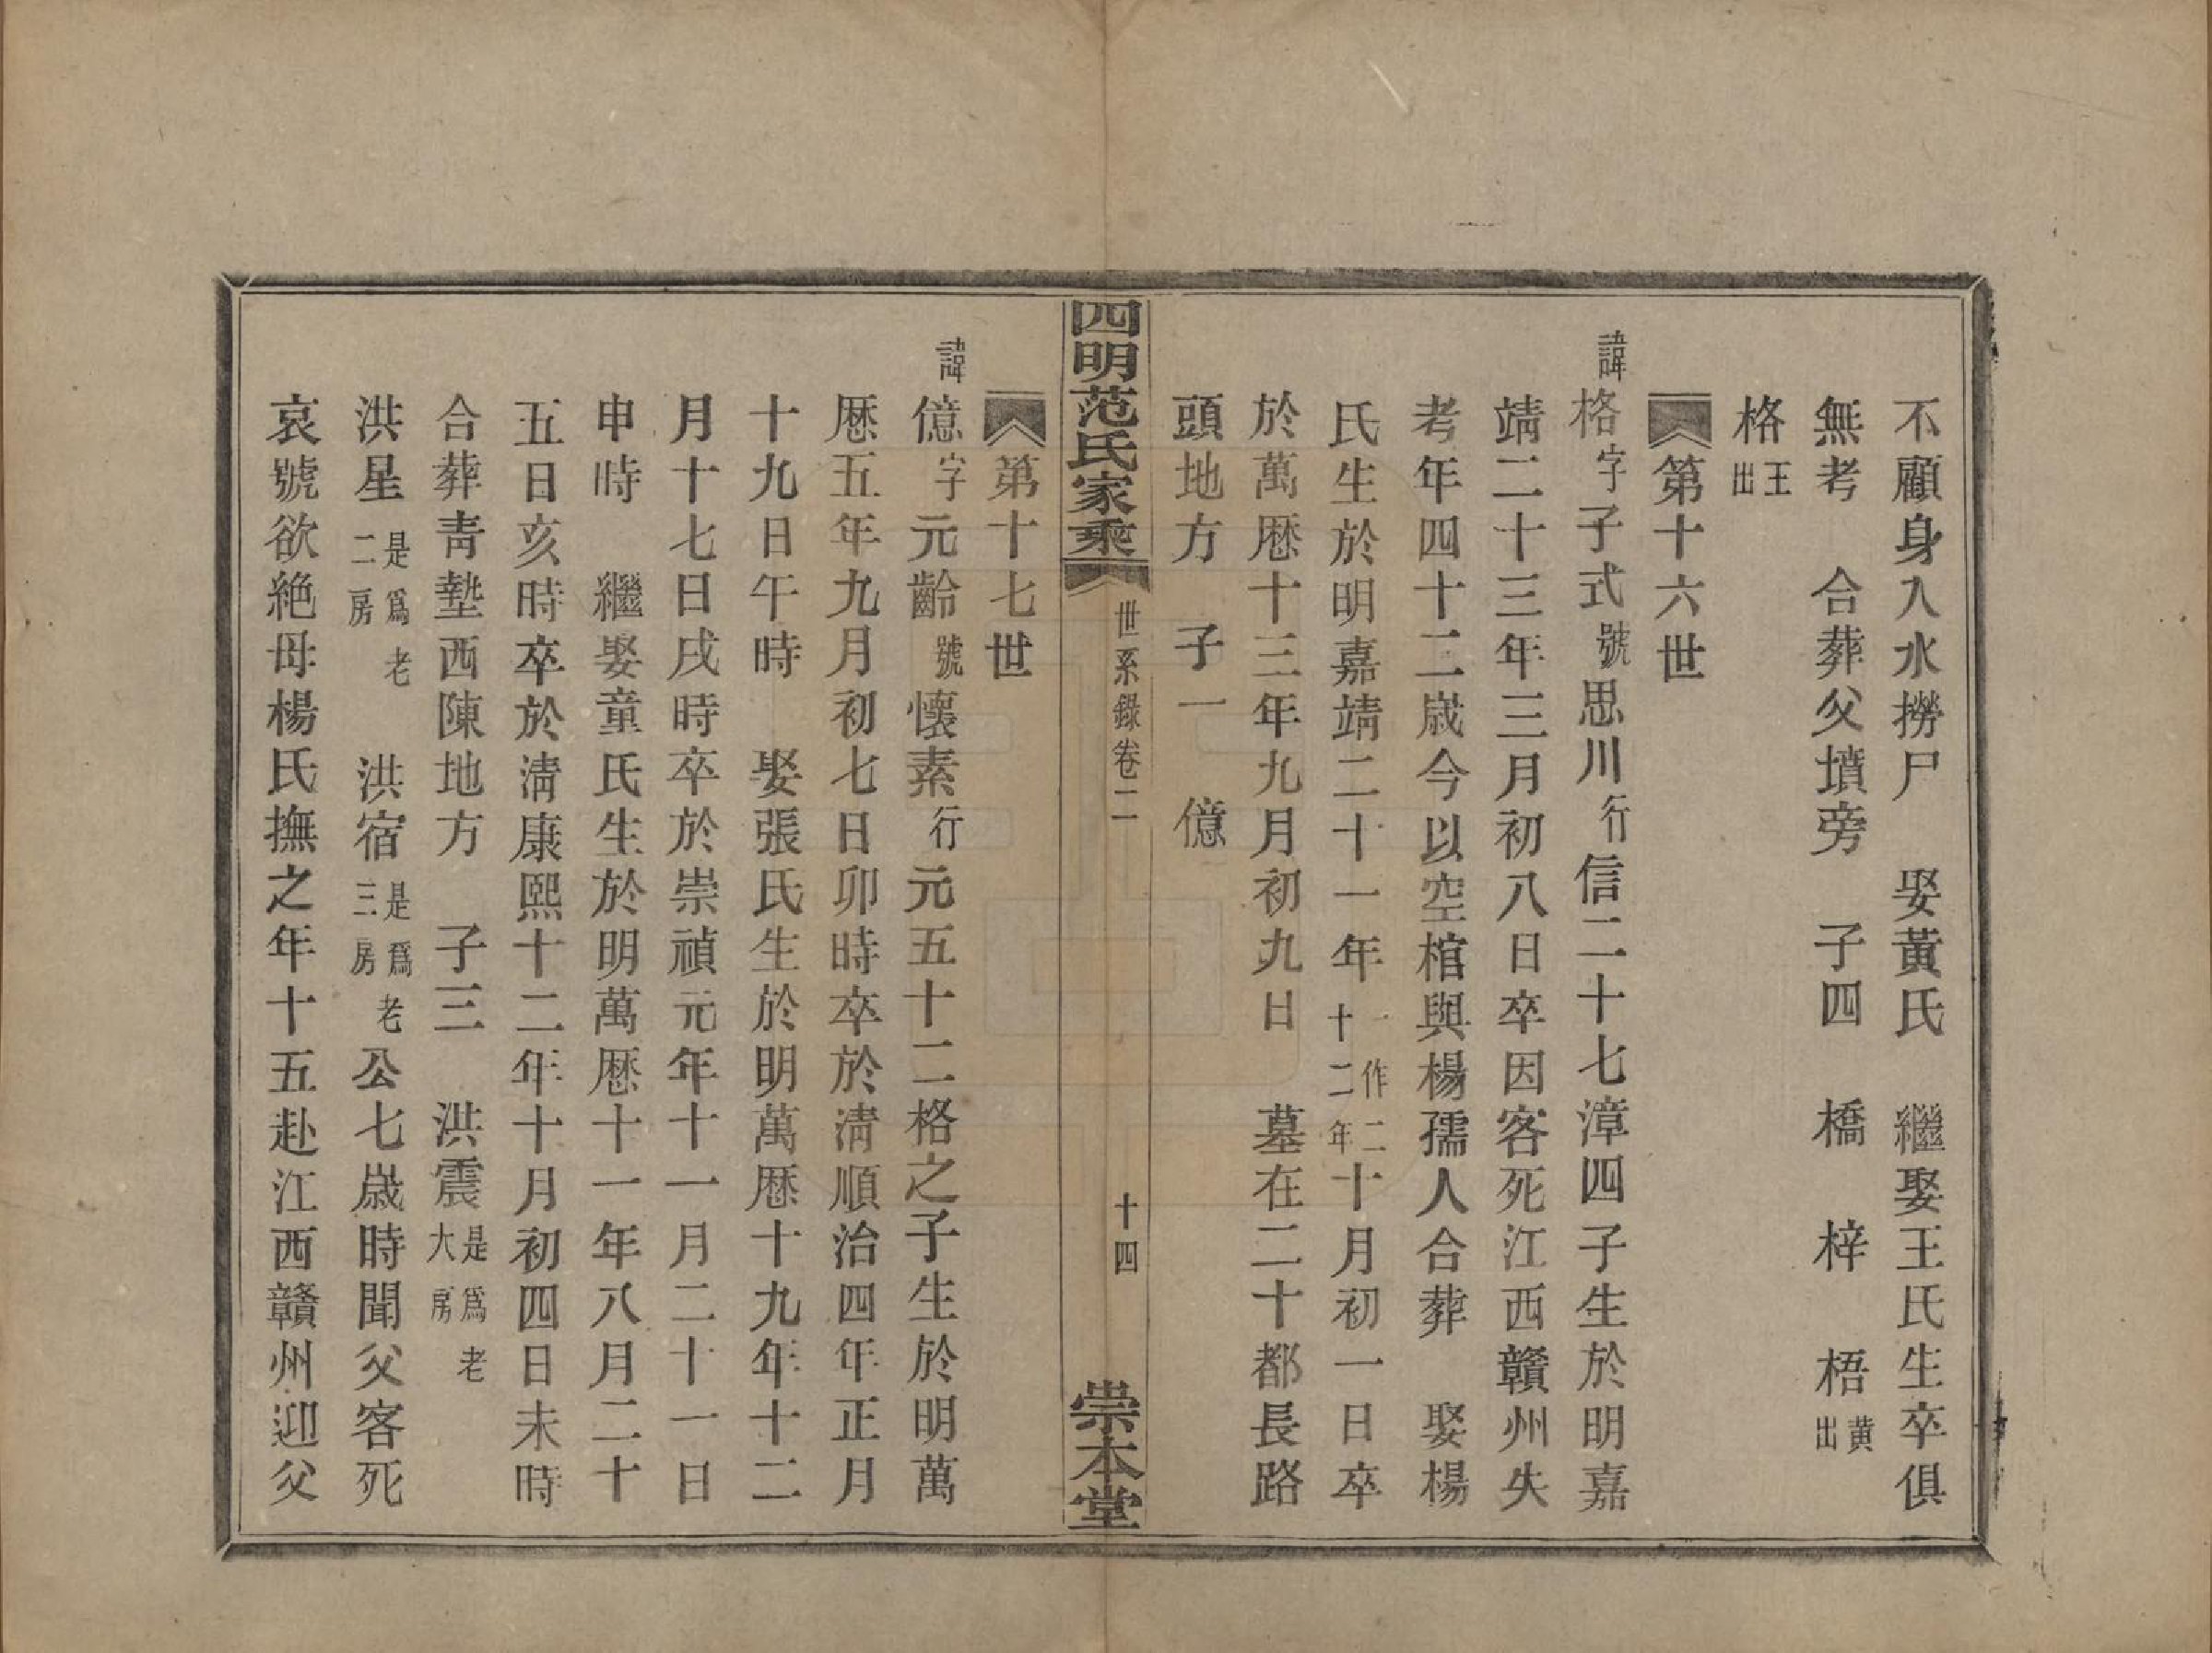 不顧身入水撈尸　娶黃氏　繼娶王氏生卒俱
無考　合葬父墳旁　子四　橋　梓　梧黃出
格王出
第十六世
諱格字子式號思川行信二十七漳四子生於明嘉
靖二十三年三月初八日卒因客死江西贛州失
考年四十二歲今以空棺與楊孺人合葬　娶楊
氏生於明嘉靖二十一年一作二十二年十月初一日卒
於萬厯十三年九月初九日　墓在二十都長路
頭地方　子一　億
四明范氏家乘　世系錄卷二　十四　崇本堂
第十七世
諱億字元齡號懷素行元五十二格之子生於明萬
厯五年九月初七日卯時卒於淸順治四年正月
十九日午時　娶張氏生於明萬厯十九年十二
月十七日戌時卒於崇禎元年十一月二十一日
申時　繼娶童氏生於明萬厯十一年八月二十
五日亥時卒於淸康熙十二年十月初四日未時
合葬靑墊西陳地方　子三　洪震是爲老大房
洪星是爲老二房　洪宿是爲老三房公七歲時聞父客死
哀號欲絕母楊氏撫之年十五赴江西贛州迎父